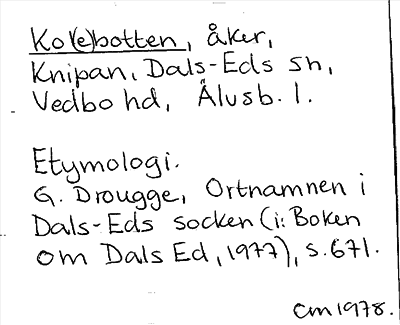 Ko(e)botten, åker,
Knipan, Dals-Eds sn,
Vedbo hd, Älvsb. l.
Etymologi.
G. Drougge, Ortnamnen i
Dals-Eds socken (i: Boken
om Dals Ed, 1977), s. 671.
CM 1978.